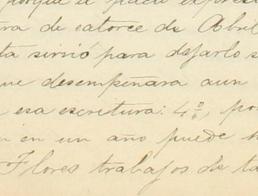 porque el
ra de catorce de Abril
ta sirvio para dejarlo s
ue desempeñara aun
esa escritura: 4º, po
en un año puede
Flores trabajos de ta